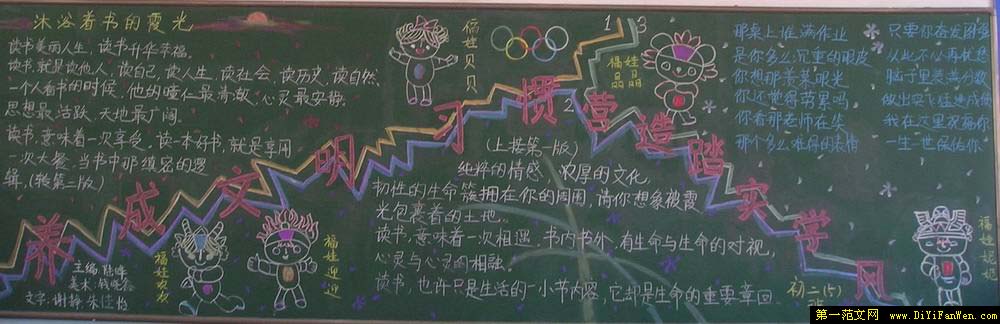 沐浴着书的霞光
读书美丽人生，读书升华幸福。
读书，就是读他人，读自己，读人生，读社会，读历史，读自然。
一个人看书的时候，他的瞳仁最清澈，心灵最安静，
思想最活跃，天地最广阔。
读书，意味着一次享受。读一本好书，就是享用
一次大餐，当书中那缜密的逻
辑，(转第二版)
养成文明习惯营造踏实学风
主编：陈峰
文字：谢静 朱佳怡
福娃欢欢
福娃迎迎
福娃贝贝
福娃晶晶
福娃妮妮
1
3
2
(上接第一版)
纯粹的情感，浓厚的文化，
韧性的生命簇拥在你的周围，请你想象被霞
光包裹着的土地。
读书，意味着一次相遇，书内书外，有生命与生命的对视，
心灵与心灵的相融。
读书，也许只是生活的一小节内容，它却是生命的重要章回。
那桌上堆满作业
是你多么沉重的眼皮
你想那菁菜眼光
你还觉得苦累吗
你看那老师在笑
那个多么难得的表情
只要你奋发图强
从此不必再忧愁
脑子里装满分数
我在这里祝福你
一生一世保佑你
初二(5)
班
第一范文网 www.DiYiFanWen.com